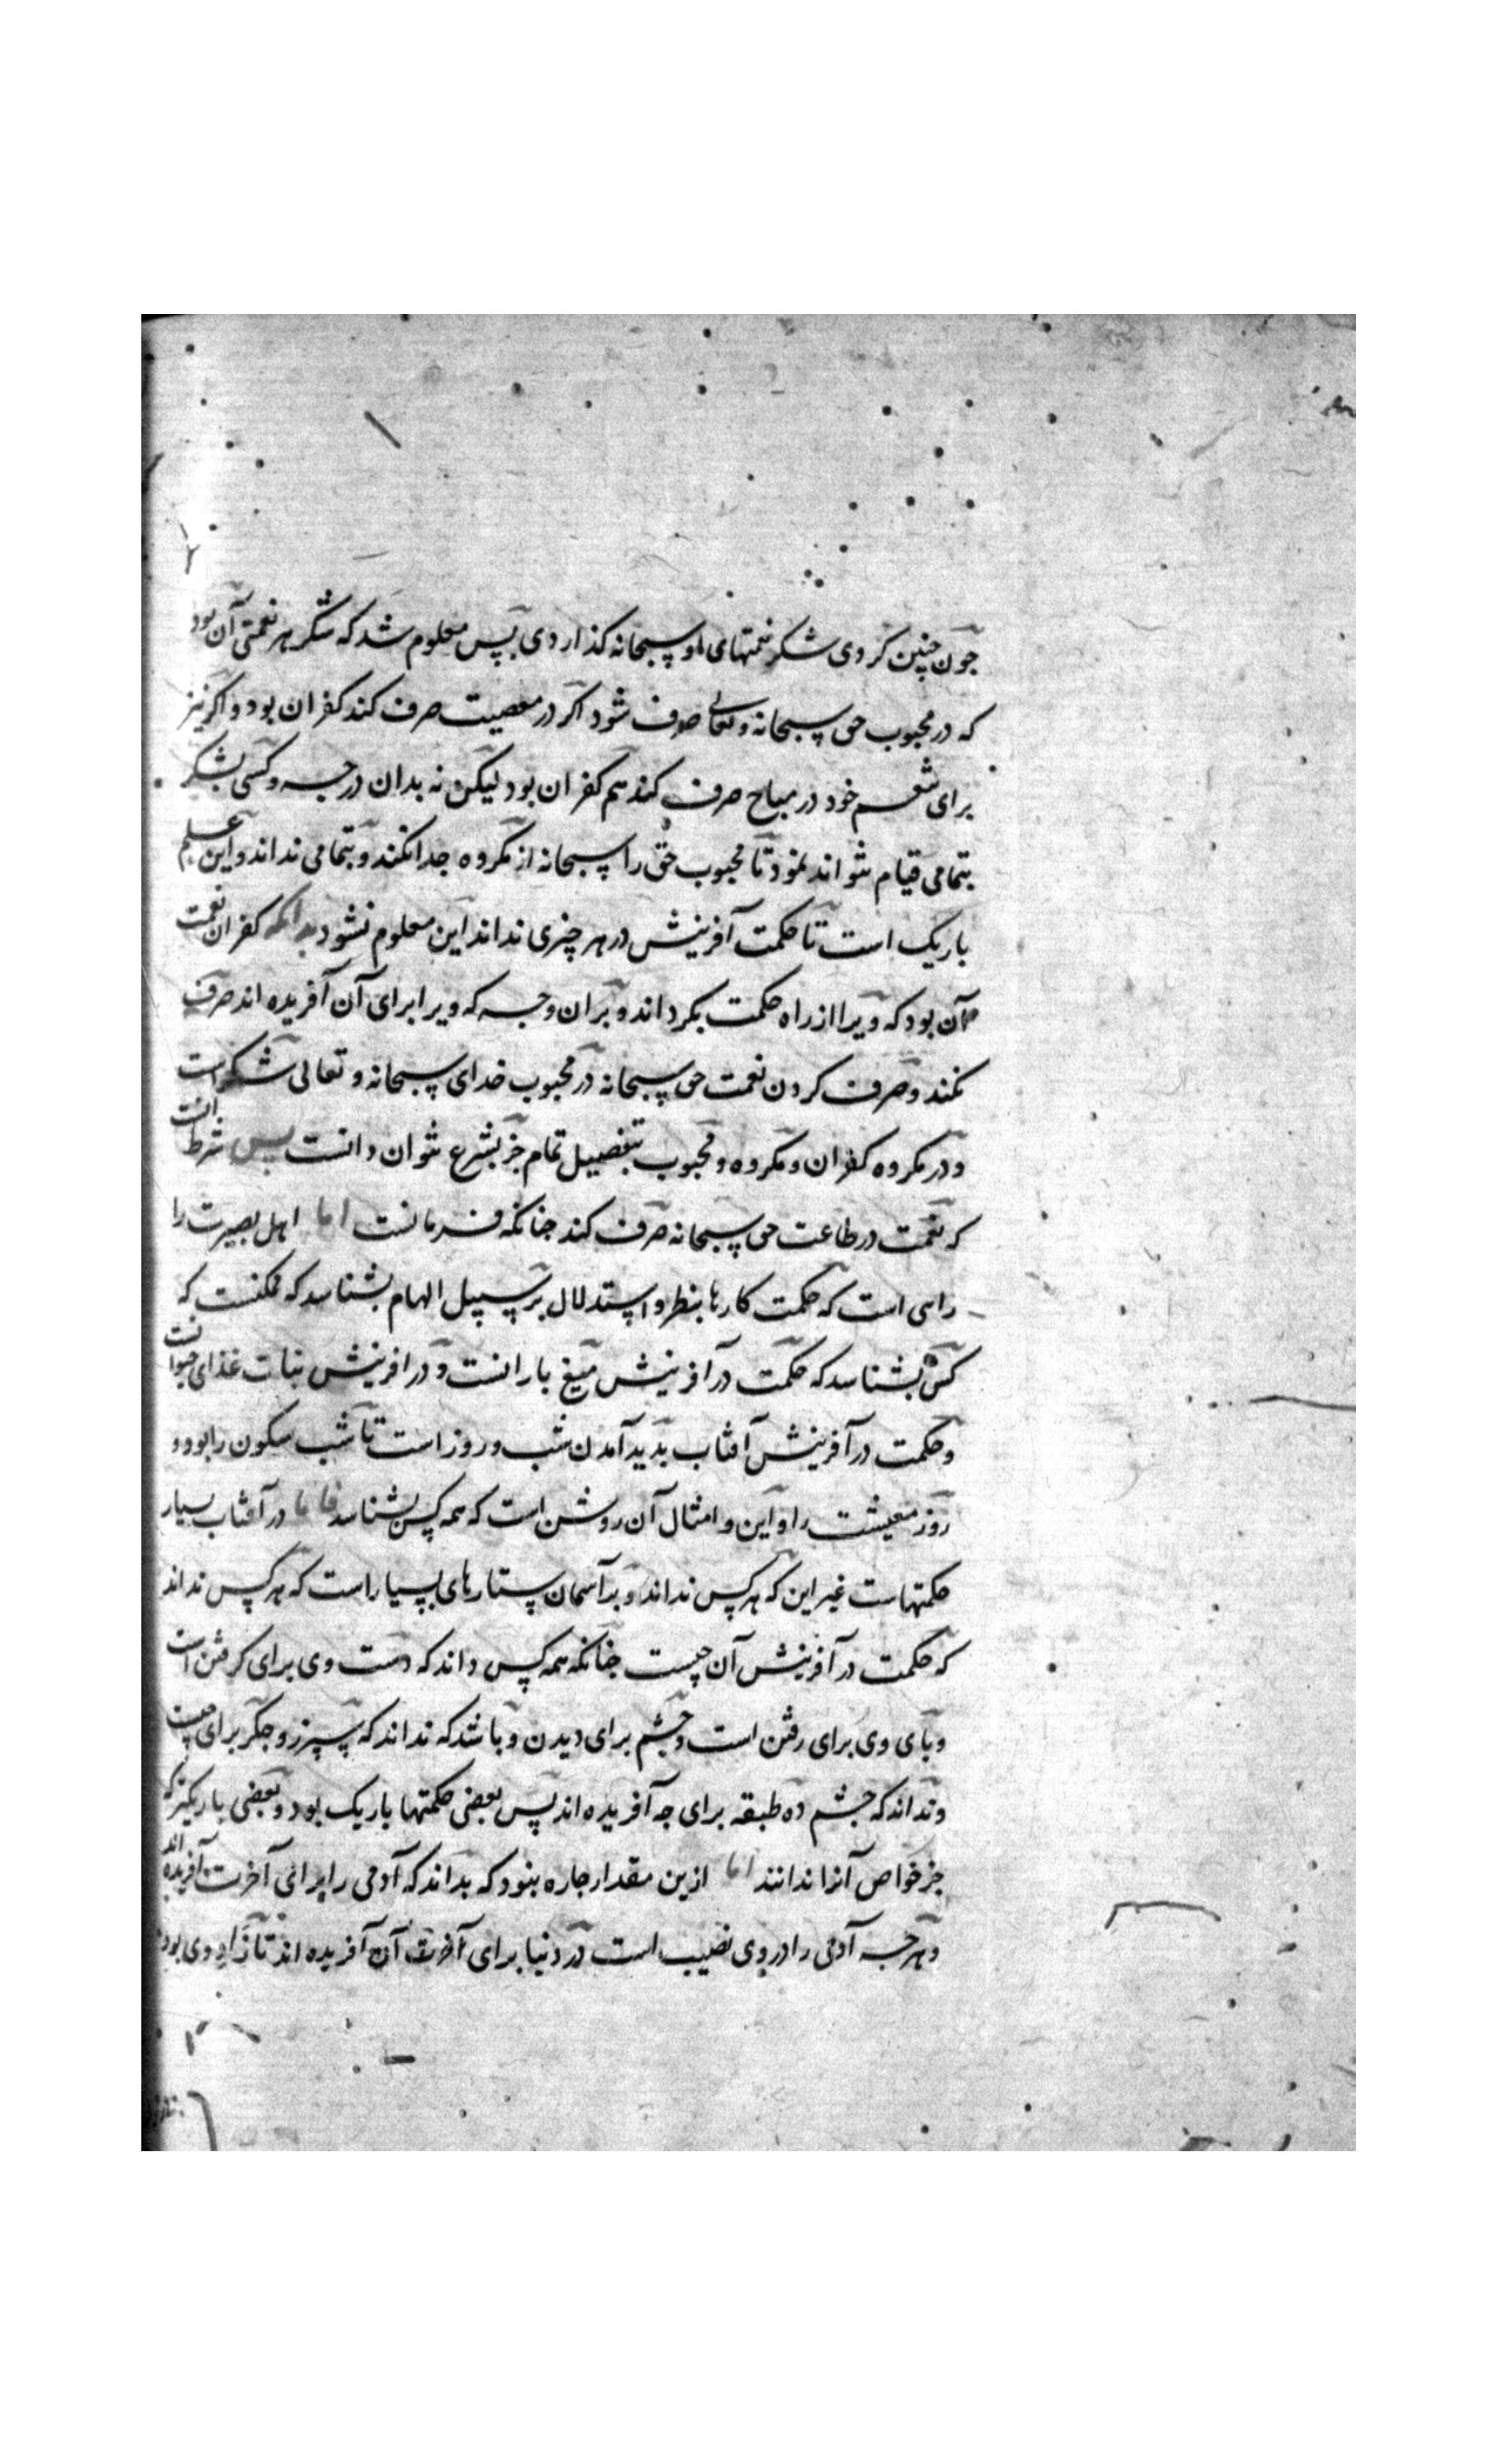 جون چنین کردی شکر نعمتهای او سبحانه گذاردی پس معلوم شد که شکر هر نعمتی آن بود
که در محبوب حق سبحانه و تعالی صرف شود اگر در معصیت صرف کند کفران بود و اگر نیز
برای تنعم خود در مباح صرف کند هم کفران بود لیکن نه بدان درجه و کسی بشکر
بتمامی قیام نتواند نمود تا محبوب حق را سبحانه از مکروه جدا نکند و بتمامی نداند و این علم
باریک است تا حکمت آفرینش در هر چیزی نداند این معلوم نشود بدانکه کفران نعمت
آن بود که ویرا از راه حکمت بکرداند و بران وجه که ویرا برای آن آفریده اند صرف
نکند و صرف کردن نعمت حق سبحانه در محبوب خدای سبحانه و تعالی شکر است
و در مکروه کفران و مکروه و محبوب بتفصیل تمام جز بشرع نتوان دانست پس شرط انست
که نعمت در طاعت حق سبحانه صرف کند جنانکه فرمانست اما اهل بصیرت را
راهی است که حکمت کارها بنظر و استدلال بر سبیل الهام بشناسد که ممکنست که
کسی بشناسد که حکمت در آفرینش میغ بارانست و در افرینش نبات غذای حیوانست
و حکمت در آفرینش آفتاب پدید آمدن شب و روز است تا شب سکون را بود و
روز معیشت را و این و امثال آن روشن است که همه کس بشناسد فاما در آفتاب بسیار
حکمتهاست غیر این که هر کس نداند و بر آسمان ستارهای بسیار است که هر کس نداند
که حکمت در آفرینش آن چیست جنانکه همه کس داند که دست وی برای کرفتن است
و پای وی برای رفتن است و چشم برای دیدن و باشد که نداند که سپرز و جگر برای چیست
و نداند که چشم ده طبقه برای چه آفریده اند پس بعضی حکمتها باریک بود و بعضی باریکتر که
جز خواص آنرا ندانند اما ازین مقدار جاره نبود که بداند که آدمی را برای آخرت آفریده اند
و هر چه آدمی را در وی نصیب است در دنیا برای آن آفریده اند تا زاد وی بود